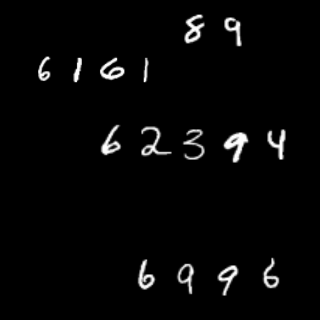 89
6161
62394
6996